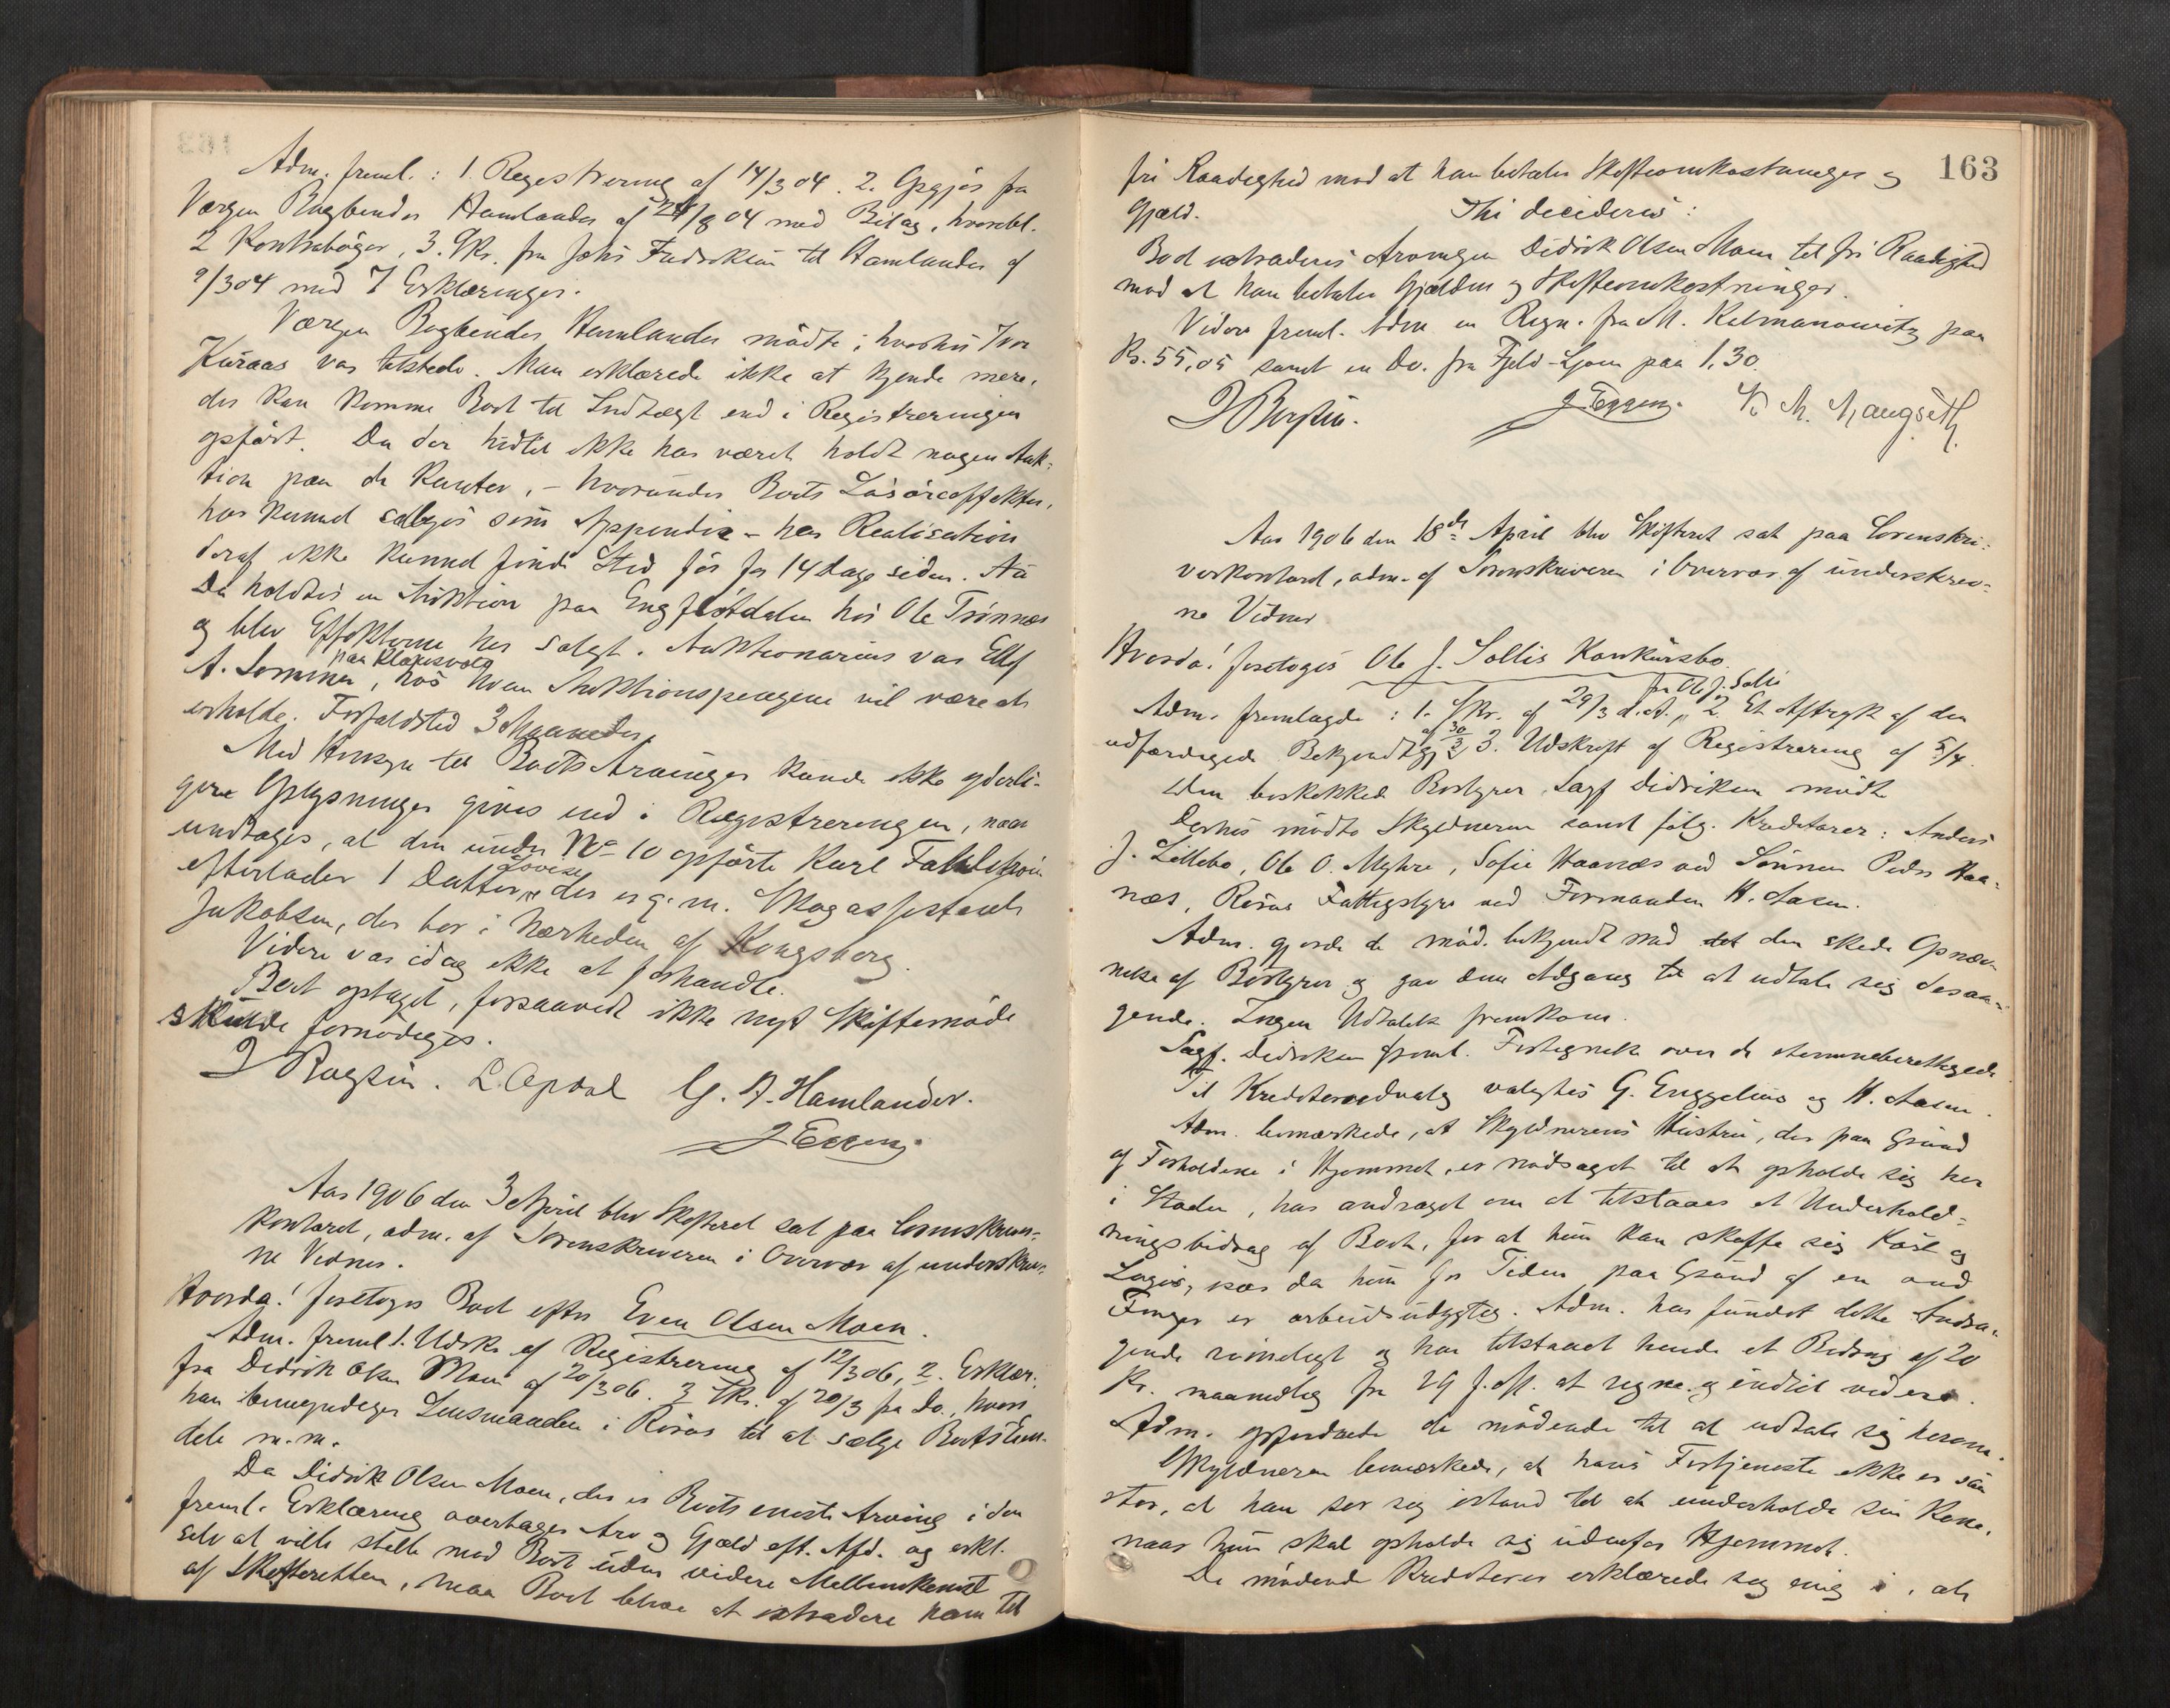 Adm. freml.: 1. Registrering af 14/3 04. 2. Opgjør fra
Værgen Bogbinder Hamlander af 24/8 04 med Bilag, hvoribl.
2 Kontrabøger, 3. Skr. fra Johs Fredriksen til Hamlander af
9/3 04 med 7 Erklæringer.
Værgen Bogbinder Hamlander mødte; hvorhos Iver
Kuraas var tilstede. Man erklærede ikke at kjende mere,
der kan komme Boet til Indtægt end i Registreringen
opført. Da der hidtil ikke har været holdt nogen Auk-
tion paa de Kanter, – hvorunder Boets Løsøreeffekter,
har kunnet sælges som Appendix – har Realisation
deraf ikke kunnet finde Sted før for 14 Dage siden. Au
Da holdtes en Auktion paa Engfløtdalen hos Ole Trønnes
og blev Effekterne her solgt. Auktionarius var Ellef
A. Lomma paa Klokervold, hos hvem Auktionspengene vil være at
erholde. Forfaldstid 3 Maaneder.
Med Hensyn til Boets Arvinger kunde ikke yderli-
gere Oplysninger gives end i Registreringen, naar
undtages, at den under No 10 opførte Karl
efterlader 1 Datter, Lovise der er g. m. Skogassistent
Jakobsen, der bor i Nærheden af Kongsberg.
Videre var idag ikke at forhandle.
Boet optaget, forsaavidt ikke nyt Skiftemøde
skulde fornødiges.
L. Opdal G. A. Hamlander.
J Eggen
Aar 1906 den 3 April blev Skifteret sat paa Sorenskriver-
kontoret, adm. af Sorenskriveren i Overvær af underskrev-
ne Vidner.
Hvorda! foretoges Boet efter Even Olsen Moen.
Adm. freml 1. Udskr. af Registrering af 12/3 06, 2. Erklær.
fra Didrik Olsen Moen af 20/3 06. 3 Skr. af 20/3 fra Do., hvori
han bemyndiger Lensmanden i Røros til at sælge Boets Eien-
dele m.m.
Da Didrik Olsen Moen, der er Boets eneste Arving i den
freml. Erklæring overtager Arv og Gjæld eft. Afd. og erkl.
selv at ville stelle med Boet uden videre Mellemkomst
af Skifteretten, maa Boet blive at extradere ham til
163
fri Raadighed mod at han betaler Skifteomkostninger og
Gjæld. Thi decideres:
Boet extraderes Arvingen Didrik Olsen Moen til fri Raadighed
mod at han betaler Gjælden og Skifteomkostninger.
Videre freml. Adm en Regn. fra M. Kalmanowitz paa
Kr. 55,05 samt en Do. fra Fjeld-Ljom paa 1,30.
J Eggen. M. Haugseth.
Aar 1906 den 18de April blev Skifteret sat paa Sorenskri-
verkontoret, adm. af Sorenskriveren i Overvær af underskrev-
ne Vidner
Hvorda! foretoges Ole J. Sollis Konkursbo.
Adm. fremlagde: 1. Skr. af 29/3 d.A. fra Ole J. Solli og 2. Et Aftryk af den
udfærdigede Bekjendtgj af 30/3 3. Udskrift af Registrering af 5/4.
Den beskikkede Bostyrer Sagf Didriksen mødte
Derhos mødte Skyldneren samt følg. Kreditorer: Anders
J. Lillebo, Ole O. Myhre, Sofie Haanæs ved Sønnen Peder Haa-
næs, Røros Fattigstyre ved Formanden H. Aasen.
Adm. gjorde de mød. bekjendt med det den skede Opnæv-
nelse af Bostyrer og gav dem Adgang til at udtale sig desan-
gende. Ingen Udtalelse fremkom.
Sagf. Didriksen freml. Fortegnelse over de stemmeberettigede.
Til Kreditorudvalg valgtes G. Enggelius og H. Aasen.
Adm. bemærkede, at Skyldnerens Hustru, der paa Grund
af Forholdene i Hjemmet, er nødsaget til at opholde sig her
i Staden, har andraget om at tilstaaes et Underhold-
ningsbidrag af Boet, for at hun kan skaffe sig Kost og
Logis, især da hun for Tiden paa Grund af en ond
Finger er arbeidsudygtig. Adm. har fundet dette Andra-
gende rimeligt og har tilstaaet hende et Bidrag af 20
Kr. maanedlig fra 29 f. M. at regne og indtil videre.
Adm. opfordrede de mødende til at udtale sig herom.
Skyldneren bemærkede, at hans Fortjeneste ikke er saa
stor, at han ser sig istand til at underholde sin Kone,
naar hun skal opholde sig udenfor Hjemmet.
De mødende Kreditorer erklærede sig enig i, at